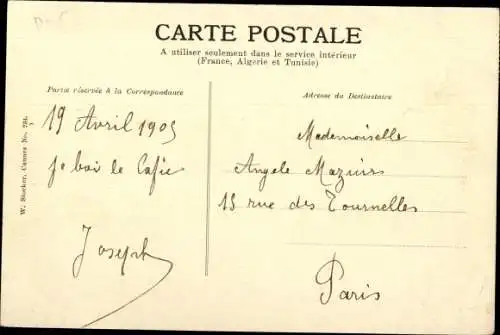 CARTE POSTALE
A utiliser seulement dans le service intérieur
(France, Algerie et Tunisie)
Partie réservée à la Correspondance
Adresse du Destinataire
19 Avril 1905
je boi le Cafie
Joseph
Mademoiselle
Angele
15 rue des Tournelles
Paris
W. Stocker, Cannes No. 784.